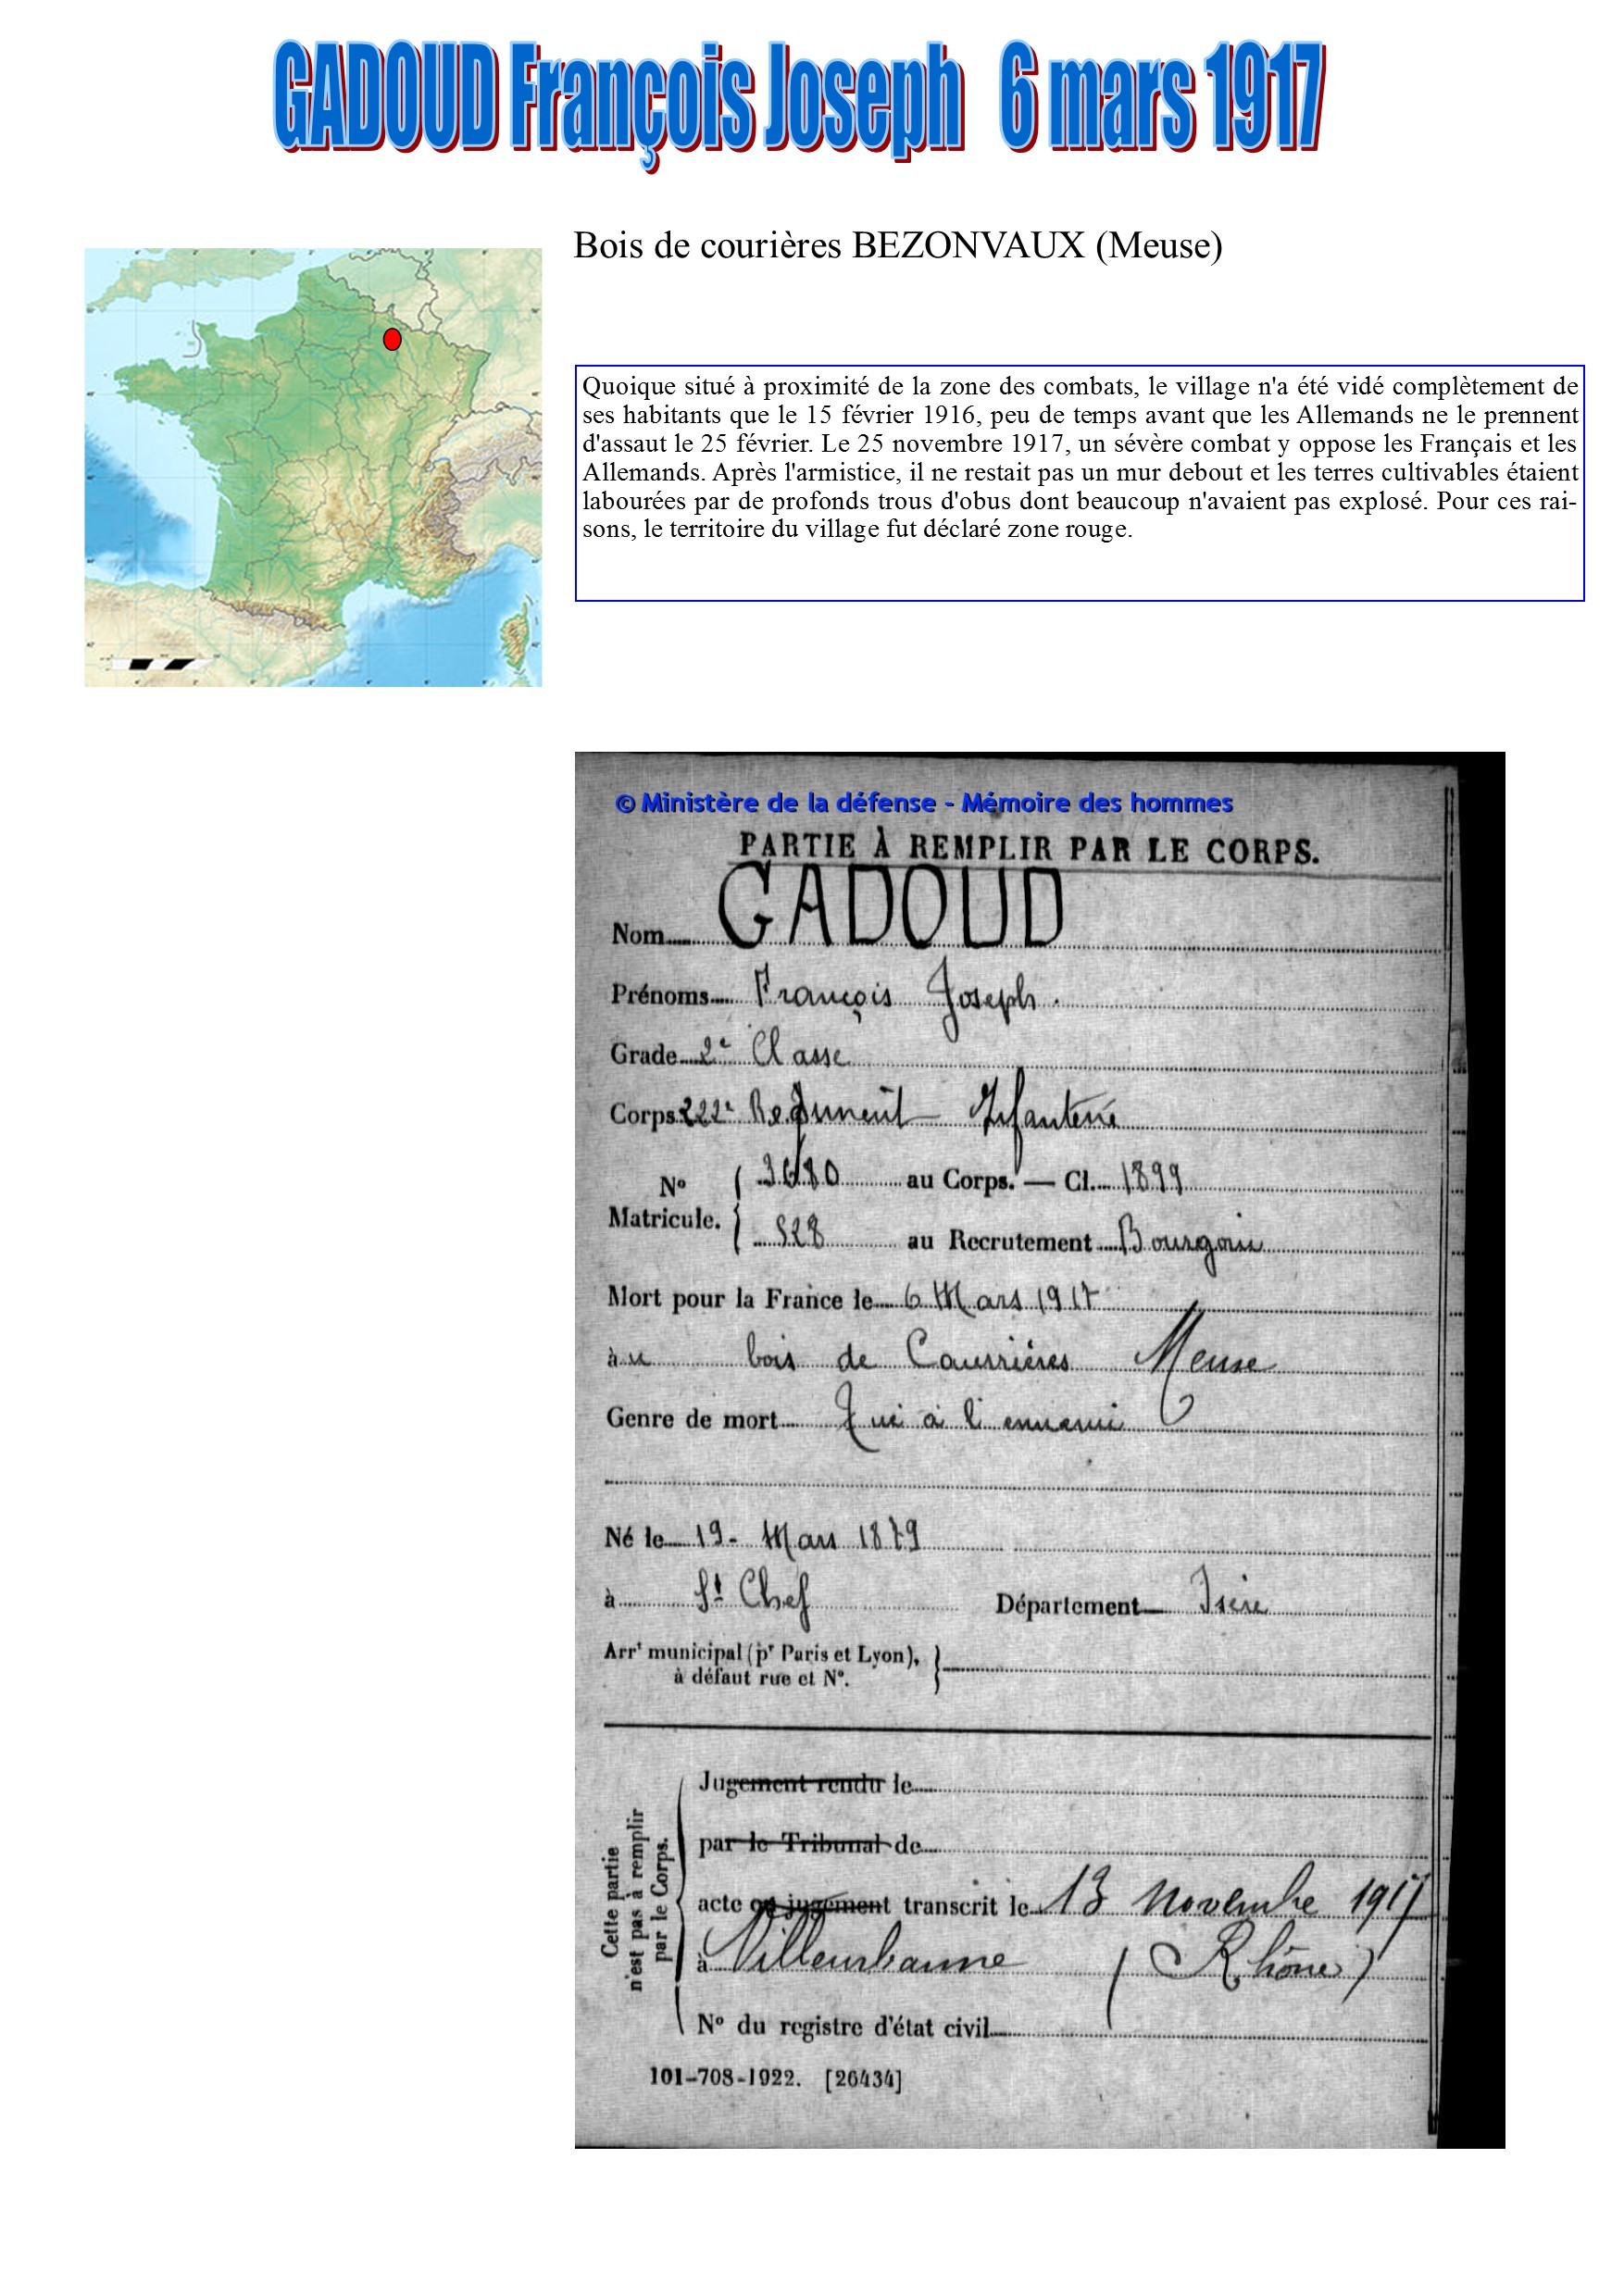 GADOUD François Joseph 6 mars 1917
Bois de courières BEZONVAUX (Meuse)
Quoique situé à proximité de la zone des combats, le village n'a été vidé complètement de
ses habitants que le 15 février 1916, peu de temps avant que les Allemands ne le prennent
d'assaut le 25 février. Le 25 novembre 1917, un sévère combat y oppose les Français et les
Allemands. Après l'armistice, il ne restait pas un mur debout et les terres cultivables étaient
labourées par de profonds trous d'obus dont beaucoup n'avaient pas explosé. Pour ces rai-
sons, le territoire du village fut déclaré zone rouge.
© Ministère de la défense - Mémoire des hommes
PARTIE À REMPLIR PAR LE CORPS.
Nom GADOUD
Prénoms François Joseph.
Grade 2e Classe
Corps 222e Régiment Infanterie
No Matricule. { 3680 au Corps. — Cl. 1899
528 au Recrutement Bourgoin
Mort pour la France le 6 Mars 1917
àu bois de Caurrières Meuse
Genre de mort Tué à l'ennemi
Né le 19 - Mars 1879
à St Chef Département Isère
Arrt municipal (pr Paris et Lyon), }
à défaut rue et No.
Cette partie
n'est pas à remplir
par le Corps.
Jugement rendu le
par le Tribunal de
acte ou jugement transcrit le 13 novembre 1917
à Villeurbanne (Rhône)
No du registre d'état civil
101-708-1922. [26434]